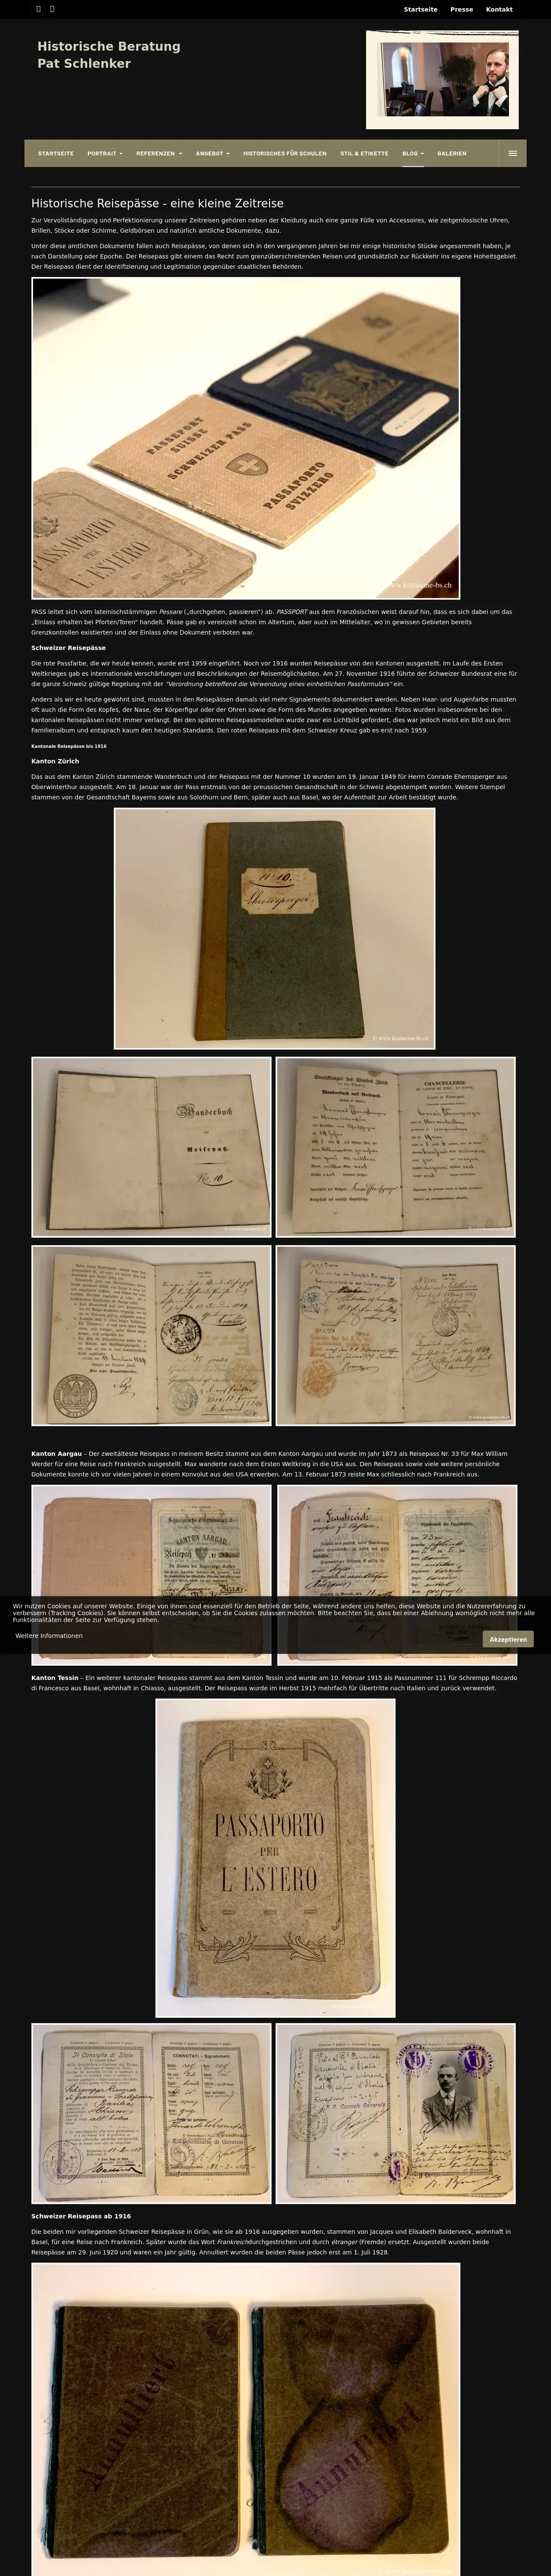 Startseite Presse Kontakt
Historische Beratung
Pat Schlenker
STARTSEITE PORTRAIT REFERENZEN ANGEBOT HISTORISCHES FÜR SCHULEN STIL & ETIKETTE BLOG GALERIEN
Historische Reisepässe - eine kleine Zeitreise
Zur Vervollständigung und Perfektionierung unserer Zeitreisen gehören neben der Kleidung auch eine ganze Fülle von Accessoires, wie zeitgenössische Uhren,
Brillen, Stöcke oder Schirme, Geldbörsen und natürlich amtliche Dokumente, dazu.
Unter diese amtlichen Dokumente fallen auch Reisepässe, von denen sich in den vergangenen Jahren bei mir einige historische Stücke angesammelt haben, je
nach Darstellung oder Epoche. Der Reisepass gibt einem das Recht zum grenzüberschreitenden Reisen und grundsätzlich zur Rückkehr ins eigene Hoheitsgebiet.
Der Reisepass dient der Identifizierung und Legitimation gegenüber staatlichen Behörden.
PASSEPORT
SUISSE
SCHWEIZER PASS
PASSAPORTO
SVIZZERO
PASSAPORTO
PER
L'ESTERO
www.kostueme-bs.ch
PASS leitet sich vom lateinischstämmigen Pessare („durchgehen, passieren“) ab. PASSPORT aus dem Französischen weist darauf hin, dass es sich dabei um das
„Einlass erhalten bei Pforten/Toren“ handelt. Pässe gab es vereinzelt schon im Altertum, aber auch im Mittelalter, wo in gewissen Gebieten bereits
Grenzkontrollen existierten und der Einlass ohne Dokument verboten war.
Schweizer Reisepässe
Die rote Passfarbe, die wir heute kennen, wurde erst 1959 eingeführt. Noch vor 1916 wurden Reisepässe von den Kantonen ausgestellt. Im Laufe des Ersten
Weltkrieges gab es internationale Verschärfungen und Beschränkungen der Reisemöglichkeiten. Am 27. November 1916 führte der Schweizer Bundesrat eine für
die ganze Schweiz gültige Regelung mit der "Verordnung betreffend die Verwendung eines einheitlichen Passformulars" ein.
Anders als wir es heute gewohnt sind, mussten in den Reisepässen damals viel mehr Signalements dokumentiert werden. Neben Haar- und Augenfarbe mussten
oft auch die Form des Kopfes, der Nase, der Körperfigur oder der Ohren sowie die Form des Mundes angegeben werden. Fotos wurden insbesondere bei den
kantonalen Reisepässen nicht immer verlangt. Bei den späteren Reisepassmodellen wurde zwar ein Lichtbild gefordert, dies war jedoch meist ein Bild aus dem
Familienalbum und entsprach kaum den heutigen Standards. Den roten Reisepass mit dem Schweizer Kreuz gab es erst nach 1959.
Kantonale Reisepässe bis 1916
Kanton Zürich
Das aus dem Kanton Zürich stammende Wanderbuch und der Reisepass mit der Nummer 10 wurden am 19. Januar 1849 für Herrn Conrade Ehernsperger aus
Oberwinterthur ausgestellt. Am 18. Januar war der Pass erstmals von der preussischen Gesandtschaft in der Schweiz abgestempelt worden. Weitere Stempel
stammen von der Gesandtschaft Bayerns sowie aus Solothurn und Bern, später auch aus Basel, wo der Aufenthalt zur Arbeit bestätigt wurde.
© www.kostueme-bs.ch
Wanderbuch
Reisepaß.
No. 10
Kanton Aargau – Der zweitälteste Reisepass in meinem Besitz stammt aus dem Kanton Aargau und wurde im Jahr 1873 als Reisepass Nr. 33 für Max William
Werder für eine Reise nach Frankreich ausgestellt. Max wanderte nach dem Ersten Weltkrieg in die USA aus. Den Reisepass sowie viele weitere persönliche
Dokumente konnte ich vor vielen Jahren in einem Konvolut aus den USA erwerben. Am 13. Februar 1873 reiste Max schliesslich nach Frankreich aus.
KANTON AARGAU
Reisepaß
Frankreich
Wir nutzen Cookies auf unserer Website. Einige von ihnen sind essenziell für den Betrieb der Seite, während andere uns helfen, diese Website und die Nutzererfahrung zu
verbessern (Tracking Cookies). Sie können selbst entscheiden, ob Sie die Cookies zulassen möchten. Bitte beachten Sie, dass bei einer Ablehnung womöglich nicht mehr alle
Funktionalitäten der Seite zur Verfügung stehen.
Weitere Informationen
Akzeptieren
Kanton Tessin – Ein weiterer kantonaler Reisepass stammt aus dem Kanton Tessin und wurde am 10. Februar 1915 als Passnummer 111 für Schrempp Riccardo
di Francesco aus Basel, wohnhaft in Chiasso, ausgestellt. Der Reisepass wurde im Herbst 1915 mehrfach für Übertritte nach Italien und zurück verwendet.
PASSAPORTO
PER
L'ESTERO
Il Consiglio di Stato
CONNOTATI - Signalement
Schweizer Reisepass ab 1916
Die beiden mir vorliegenden Schweizer Reisepässe in Grün, wie sie ab 1916 ausgegeben wurden, stammen von Jacques und Elisabeth Balderveck, wohnhaft in
Basel, für eine Reise nach Frankreich. Später wurde das Wort Frankreichdurchgestrichen und durch étranger (Fremde) ersetzt. Ausgestellt wurden beide
Reisepässe am 29. Juni 1920 und waren ein Jahr gültig. Annulliert wurden die beiden Pässe jedoch erst am 1. Juli 1928.
Annulliert
Annulliert